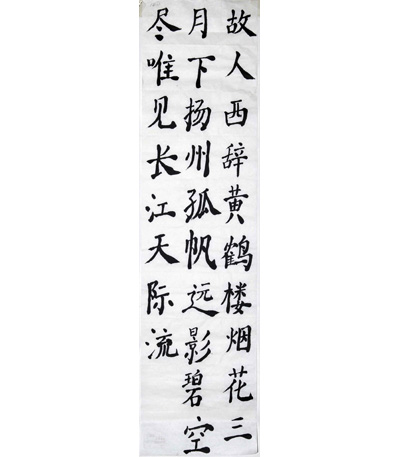 故人西辞黄鹤楼烟花三
月下扬州孤帆远影碧空
尽唯见长江天际流